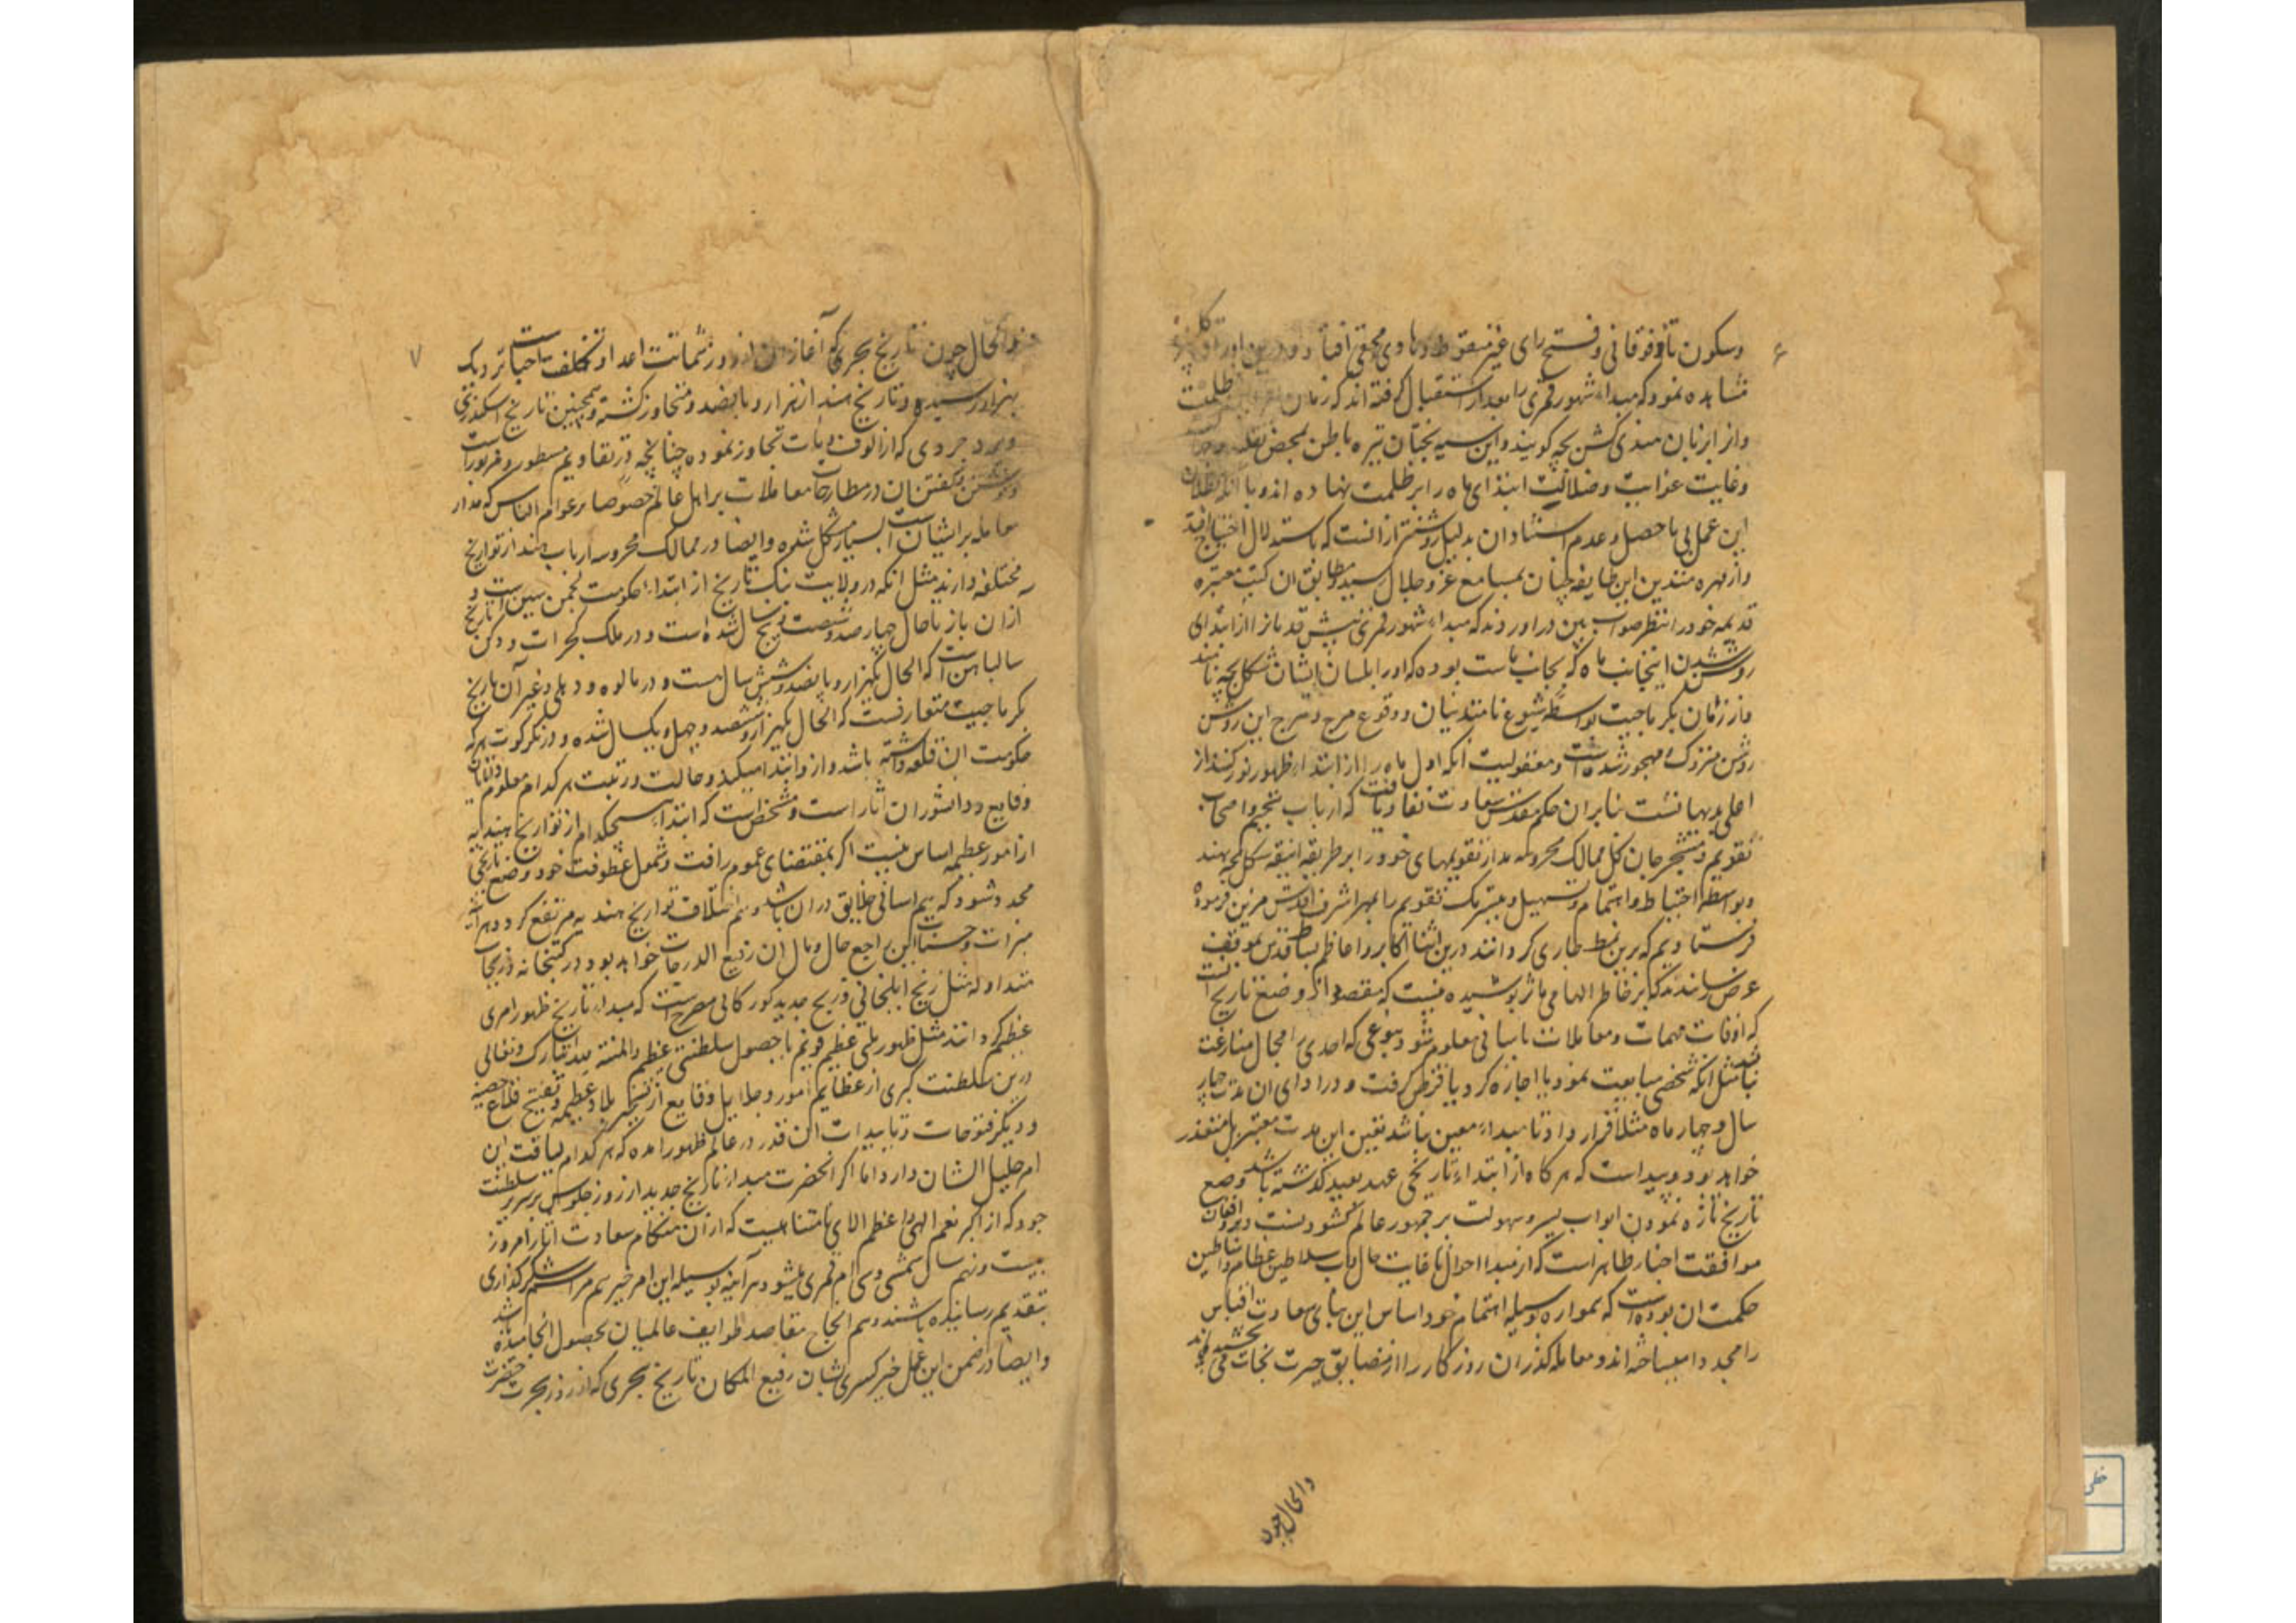 ۶
وسکون تاء فوقانی و فتح رای غیر منقوط و ها و یای تحتی افتاد و درین اوراق
مشاهده نمود که مبداء شهور قمری را بعد از استقبال گرفته اند که زمان ظلمت
و از ا بزبان هندی کشن پچه گویند و این سیه بختان تیره باطن بمحض تقلید
وغایت غوایت وضلالت ابتدای ماه را بر ظلمت نهاده اند و با آنکه بطلان
این عمل بی ماحصل و عدم استناد ان بدلیل روشنتر از انست که باستدلال احتیاج افتد
و از مهره متدین این طایفه چنان بمسامع عز و جلال رسید و مطابق ان کتب معتبره
قدیمه خود را بنظر صواب بین در اوردند که مبداء شهور قمری پیش قدما از ابتدای
روشن شدن اینجانب ماه که بجانب ماست بوده که اورا بلسان ایشان شکل پچه نامند
و از زمان بکرماجیت بواسطه شیوع نامتدینان و وقوع هرج و مرج این روش
روشن متروک و مهجور شده است و معقولیت آنکه اول ماه را از ابتداء ظهور نور کنند از
اجلی بدیهیاتست بنابران حکم مقدس سعادت نفاذ یافت که ارباب تنجیم و اصحاب
تقویم و مستخرجان کل ممالک محروسه مدار تقویمهای خود را بر طریقه انیقه شکل پچه نهند
و بواسطه احتیاط و اهتمام و تسهیل و تیسر یک تقویم را بمهر اشرف اقدس مزین فرموده
فرستادیم که برین نمط جاری گردانند درین اثنا اکابر و اعاظم بساط اقدس بموقف
عرض رسانیدند که بر خاطر الهامی ماثر پوشیده نیست که مقصود از وضع تاریخ آنست
که اوقات مهمات و معاملات باسانی معلوم شود بنوعی که احدی را مجال منازعت
نباشد مثل انکه شخصی مبایعت نمود یا اجازه کرد یا قرض گرفت و در ادای ان مدت چهار
سال و چهار ماه مثلا قرار داد تا مبداء معین نباشد تعیین این مدت متعسر بل متعذر
خواهد بود و پیداست که هر گاه از ابتداء تاریخی عهد بعید گذشته باشد وضع
تاریخ تازه نمودن ابواب یسر و سهولت بر جمهور عالم گشودنست و بر واقفان
مواقف اخبار ظاهر است که از مبداء احوال تا غایت حال داب سلاطین عظام و اساطین
حکمت ان بوده است که همواره بوسیله اهتمام خود اساس این بنای سعادت اقتباس
را مجددا میساخته اند و معامله گذران روزگار را از مضایق حیرت نجات می بخشیده اند
والحال چون
۷
والحال چون تاریخ هجری که آغاز ان از روز شماتت اعدا و تکلف احباست نزدیک
بهزار رسیده و تاریخ هند از هزار و پانصد متجاوز گشته و همچنین تاریخ اسکندری
و یزدجردی که از الوف و مآت تجاوز نموده چنانچه در تقاویم مسطور و مزبور است
و نوشتن و گفتن ان در مطارحات معاملات بر اهل عالم خصوصا بر عوام الناس که مدار
معامله بر ایشان است بسیار مشکل شمره و ایضا در ممالک محروسه ارباب هند از تواریخ
مختلفه دارند مثل انکه در ولایت بنک تاریخ از ابتداء حکومت لچمن سین است و
ازان باز تا حال چهار صد و شصت و پنج سال شده است و در ملک گجرات و دکن تاریخ
سالباهن است که الحال یکهزار و پانصد و شش سال است و در مالوه و دهلی و غیر آن تاریخ
بکرماجیت متعارفست که الحال یکهزار و ششصد و چهل و یک سال شده و در نگرکوت هر که
حکومت ان قلعه داشته باشد از و ابتدا میکند و حالت و رتبت هر کدام معلوم دانایان
وقایع و دانشوران آثار است و مشخص است که ابتداء هیچکدام از تواریخ هندیه
از امور عظیمه اساس نیست اگر بمقتضای عموم رافت و شمول عطوفت خود وضع تاریخی
مجدد شود که هم اسانی خلایق دران باشد و هم اختلاف تواریخ هندیه مرتفع گردد هر آینه
مبرات و حسنات این راجع حال و مآل ان رفیع الدرجات خواهد بود در کتبخانه و زیجات
متداوله مثل زیج ایلخانی و زیج جدید گورکانی مصرح است که مبداء تاریخ ظهور امری
عظیم گردانند مثل ظهور ملتی عظیم قویم یا حصول سلطنتی عظیم والمنة لله تبارک و تعالی
درین سلطنت کبری از عظایم امور و جلایل وقایع از تسخیر بلاد عظیمه و تفتیح قلاع حصینه
و دیگر فتوحات و تاییدات آن قدر در عالم ظهور آمده که هر کدام لیاقت ان
امر جلیل الشان دارد اما اگر انحضرت مبداء تاریخ جدید از روز جلوس بر سریر سلطنت
جود که از اکبر نعم الهی و اعظم الای نامتناهیست که از آن هنگام سعادت آثار امروز
بیست و نهم سال شمسی و سی ام قمری میشود هر آینه بوسیله این امر خیر هم مراسم شکر گذاری
بتقدیم رسانیده باشند و هم انجاح مقاصد طوایف عالمیان بحصول انجامیده باشد
و ایضا در ضمن این عمل خیر کسری بشان رفیع المکان تاریخ هجری که از روز هجرت حضرت